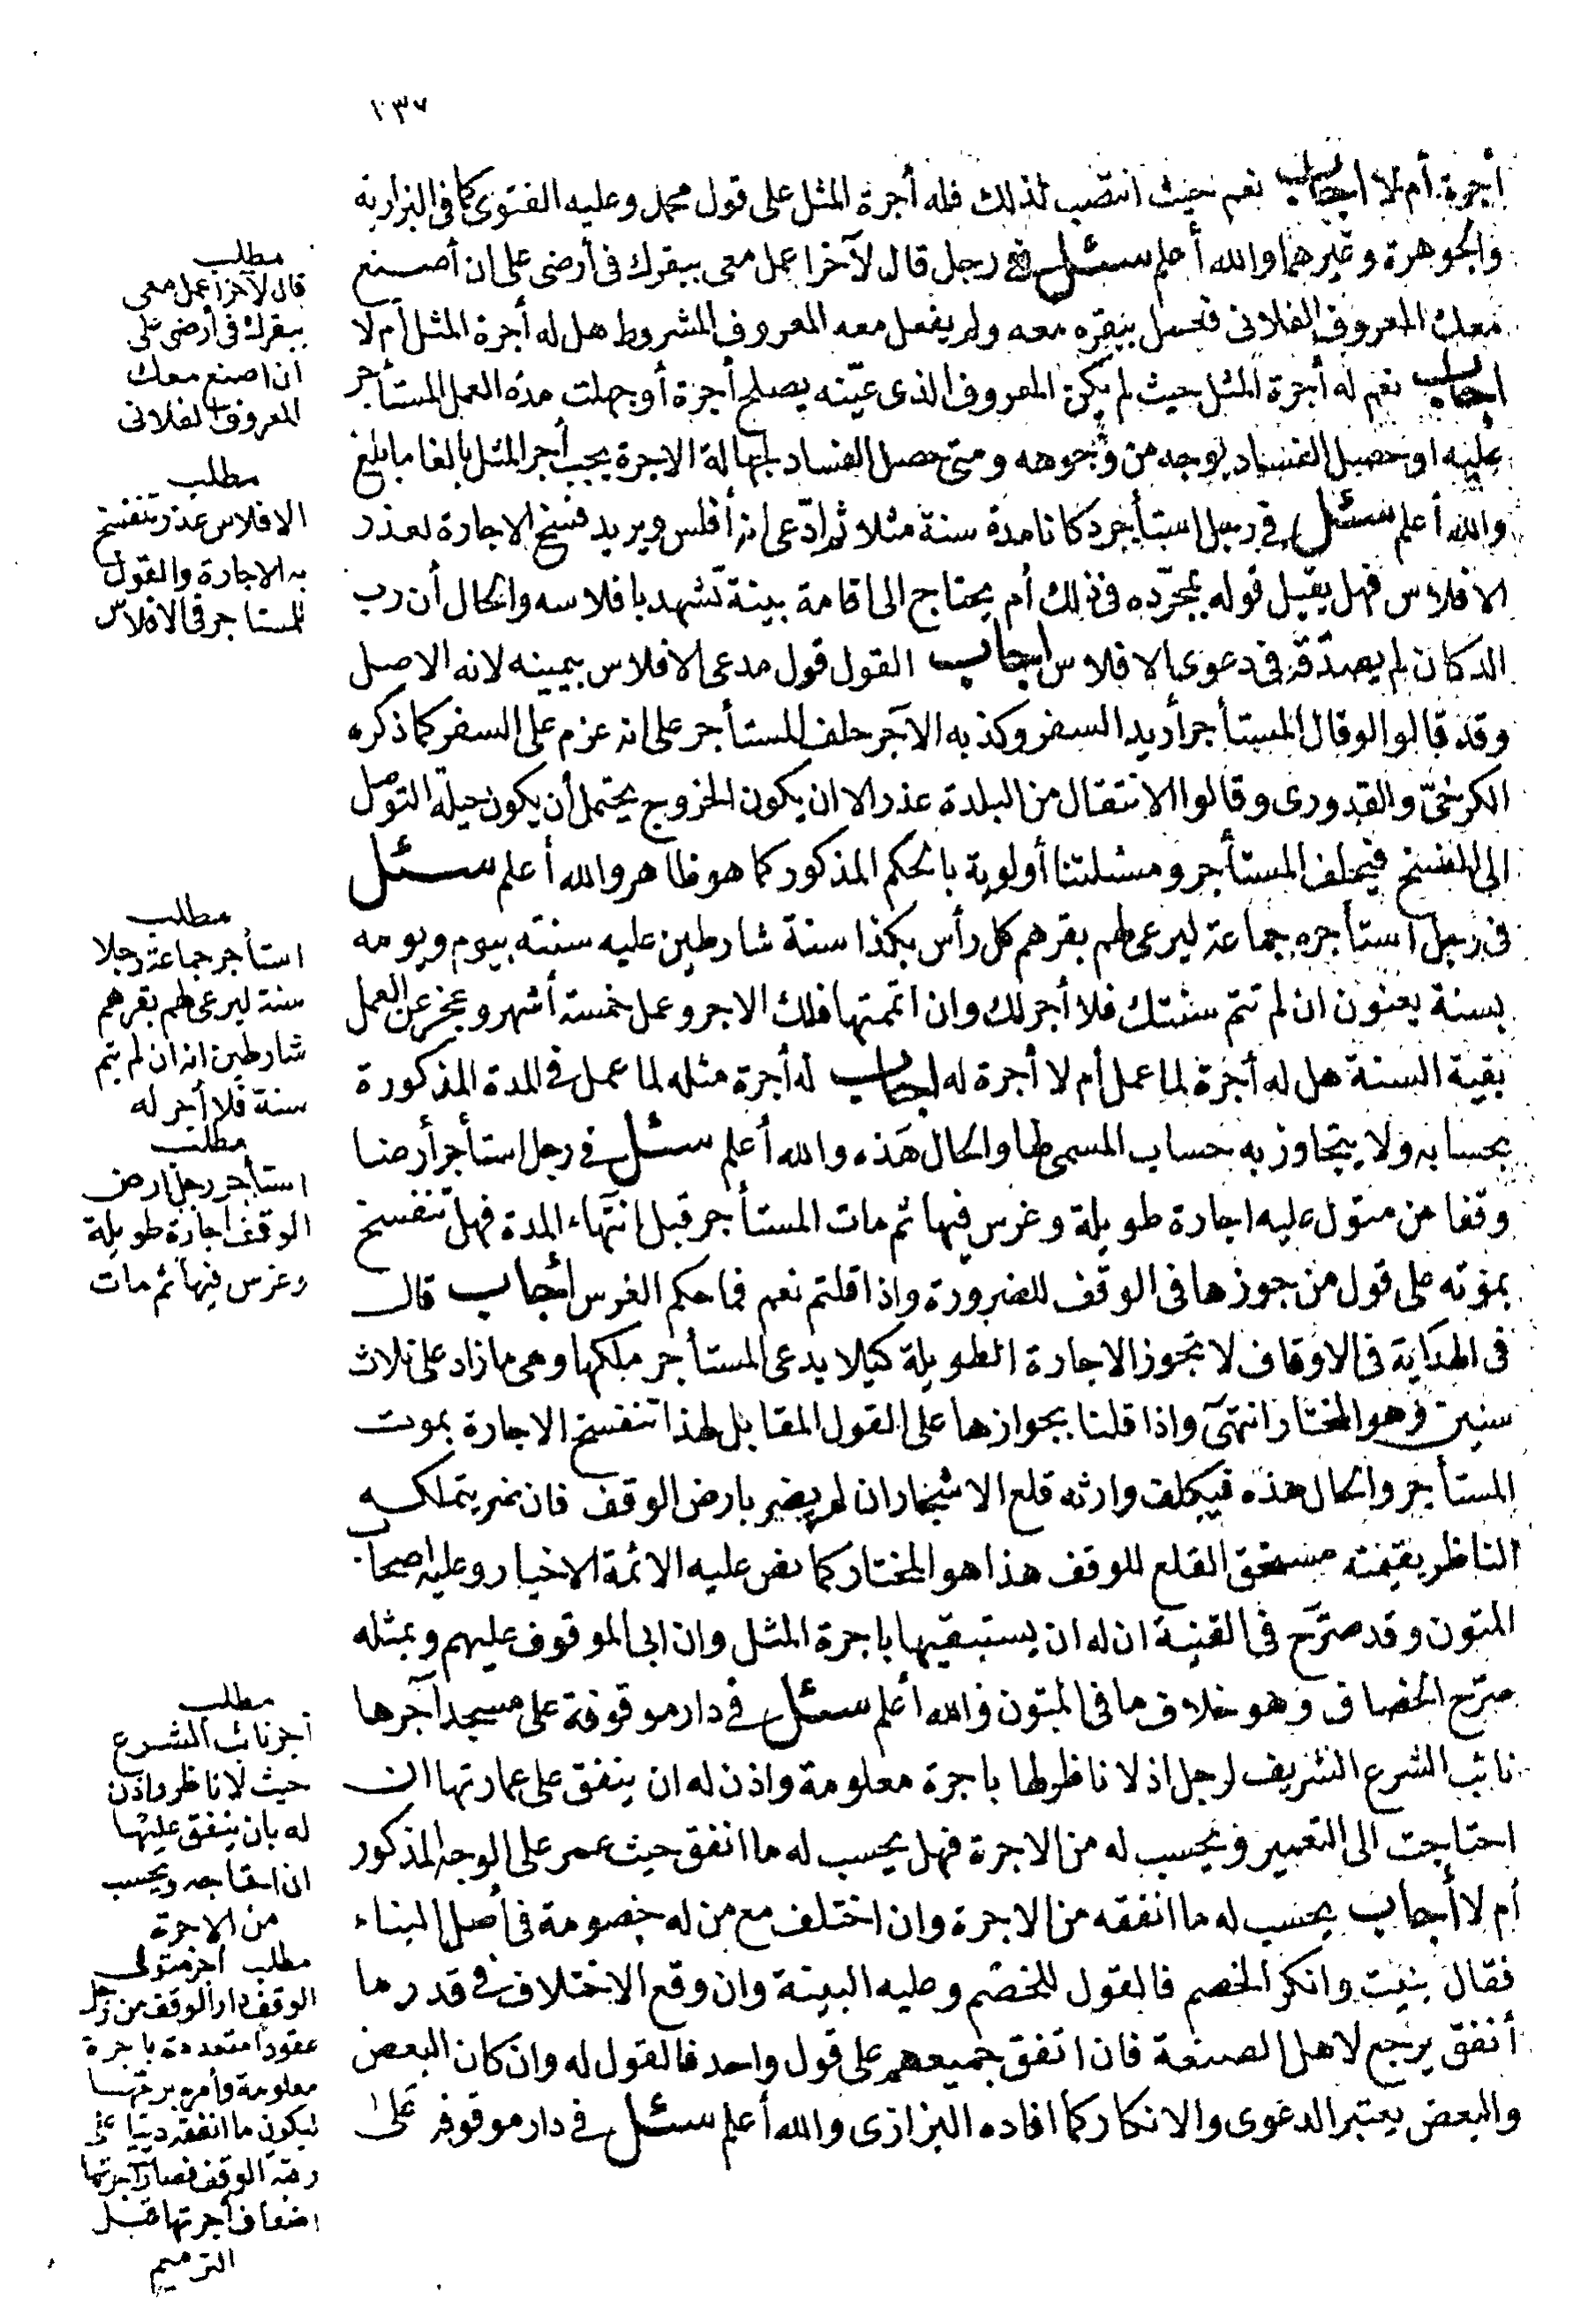 ١٣٧
أجرة أم لا أجاب نعم حيث انتصب لذلك فله أجرة المثل على قول محمد وعليه الفتوى كما فى البزازية
والجوهرة وغيرهما والله أعلم سئل فى رجل قال لآخر اعمل معى ببقرك فى أرضى على ان أصنع
معك المعروف الفلانى فعمل ببقره معه ولم يفعل معه المعروف المشروط هل له أجرة المثل أم لا
اجاب نعم له أجرة المثل حيث لم يكن المعروف الذى عيّنه يصلح أجرة أو جهلت مدة العمل المستأجر
عليه او حصل الفساد بوجه من وجوهه ومتى حصل الفساد لجهالة الاجرة يجب أجر المثل بالغا ما بلغ
والله أعلم سئل فى رجل استأجر دكانا مدة سنة مثلا ثم ادّعى انه أفلس ويريد فسخ الاجارة لعذر
الافلاس فهل يقبل قوله بمجرّده فى ذلك أم يحتاج الى اقامة بينة تشهد بافلاسه والحال أن رب
الدكان لم يصدّقه فى دعوى الافلاس اجاب القول قول مدعى الافلاس بيمينه لانه الاصل
وقد قالوا لو قال المستأجر أريد السفر وكذبه الآجر حلف المستأجر على انه عزم على السفر كما ذكره
الكرخىّ والقدورى وقالوا الانتقال من البلدة عذر الا ان يكون الخروج يحتمل أن يكون حيلة التوصل
الى الفسخ فيحلف المستأجر ومسئلتنا أولوية بالحكم المذكور كما هو ظاهر والله أعلم سئل
فى رجل استأجره جماعة ليرعى لهم بقرهم كل رأس بكذا سنة شارطين عليه سنته بيوم ويومه
بسنة يعنون ان لم تتم سنتك فلا أجر لك وان اتممتها فلك الاجر وعمل خمسة أشهر وعجز عن العمل
بقية السنة هل له أجرة لما عمل أم لا أجرة له اجاب له أجرة مثله لما عمل فى المدة المذكورة
بحسابه ولا يتجاوز به حساب المسمى لها والحال هذه والله أعلم سئل فى رجل استأجر أرضا
وقفا من متول عليه اجارة طويلة وغرس فيها ثم مات المستأجر قبل انتهاء المدة فهل تنفسخ
بموته على قول من جوزها فى الوقف للضرورة واذا قلتم نعم فما حكم الغرس أجاب قال
فى الهداية فى الاوقاف لا تجوز الاجارة الطويلة كيلا يدعى المستأجر ملكها وهى ما زاد على ثلاث
سنين وهو المختار انتهى واذا قلنا بجوازها على القول المقابل لهذا تنفسخ الاجارة بموت
المستأجر والحال هذه فيكلف وارثه قلع الاشجار ان لم يضر بارض الوقف فان ضر يتملكه
الناظر بقيمته مستحق القلع للوقف هذا هو المختار كما نص عليه الائمة الاخيار وعليه اصحاب
المتون وقد صرّح فى القنية ان له ان يستبقيها باجرة المثل وان ابى الموقوف عليهم وبمثله
صرّح الخصاف وهو خلاف ما فى المتون والله أعلم سئل فى دار موقوفة على مسجد آجرها
نائب الشرع الشريف لرجل اذ لا ناظر لها باجرة معلومة واذن له ان ينفق على عمارتها ان
احتاجت الى التعمير ويحسب له من الاجرة فهل يحسب له ما انفق حيث عمر على الوجه المذكور
أم لا أجاب يحسب له ما انفقه من الاجرة وان اختلف مع من له خصومة فى أصل البناء
فقال بنيت وانكر الخصم فالقول للخصم وعليه البينة وان وقع الاختلاف فى قدر ما
أنفق يرجع لاهل الصنعة فان اتفق جميعهم على قول واحد فالقول له وان كان البعض
والبعض يعتبر الدعوى والانكار كما افاده البزازى والله أعلم سئل فى دار موقوفة على
مطلب
قال لآخر اعمل معى
ببقرك فى أرضى على
ان اصنع معك
المعروف الفلانى
مطلب
الافلاس عذر تنفسخ
به الاجارة والقول
للمستاجر فى الافلاس
مطلب
استأجر جماعة رجلا
سنة ليرعى لهم بقرهم
شارطين انه ان لم يتم
سنة فلا أجر له
مطلب
استأجر رجل ارض
الوقف اجارة طويلة
وغرس فيها ثم مات
مطلب
آجر نائب الشرع
حيث لا ناظر واذن
له بان ينفق عليها
ان احتاجت ويحسب
من الاجرة
مطلب آجر متولى
الوقف دار الوقف من رجل
عقودا متعددة باجرة
معلومة وأمره برمّتها
ليكون ما انفقه دينا على
رقبة الوقف فصار أجرتها
اضعاف أجرتها قبل
الترميم